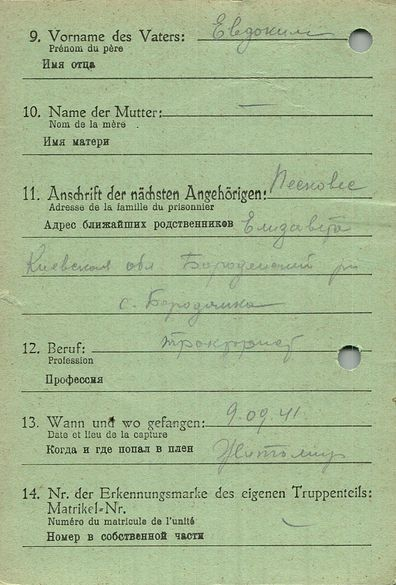 9. Vorname des Vaters: Евдоким
Prénom du père
Имя отца
10. Name der Mutter: —
Nom de la mère
Имя матери
11. Anschrift der nächsten Angehörigen:
Adresse de la famille du prisonnier
Адрес ближайших родственников Елизавета
Киевская обл
с. Бородянка
12. Beruf: тракторист
Profession
Профессия
13. Wann und wo gefangen: 9.09.41
Date et lieu de la capture
Когда и где попал в плен Житомир
14. Nr. der Erkennungsmarke des eigenen Truppenteils:
Matrikel-Nr.
Numéro du matricule de l'unité
Номер в собственной части